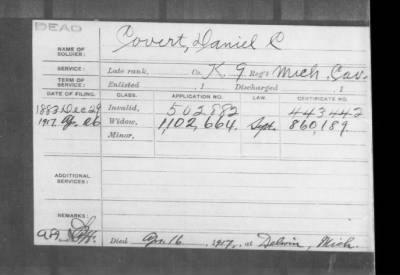 DEAD
NAME OF SOLDIER: Covert, Daniel C
SERVICE: Late rank, Co. K, 9 Reg't Mich. Cav.
TERM OF SERVICE: Enlisted , 1 Discharged , 1
DATE OF FILING. CLASS. APPLICATION NO. LAW. CERTIFICATE NO.
1883 Dec 29 Invalid, 502,882 443442
1917 Ap. 26 Widow, 1,102,664 Sept. 860,189
Minor,
ADDITIONAL SERVICES:
REMARKS:
Died Apr. 16, 1917, at Delwin, Mich.